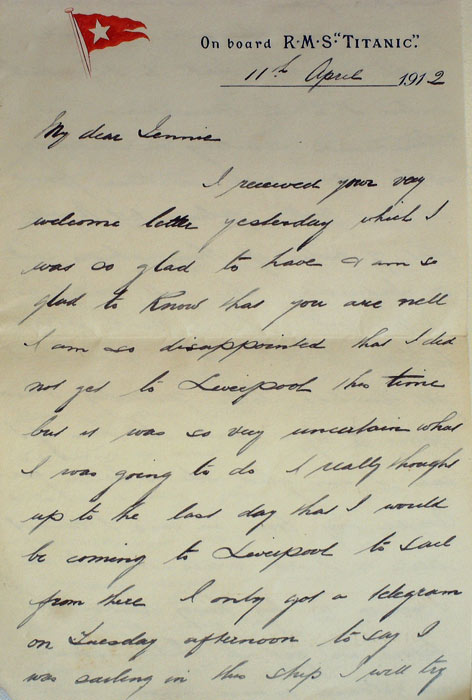 On board R·M·S·"TITANIC".
11th April 1912
My dear Jennie
I received your very
welcome letter yesterday which I
was so glad to have & am so
glad to know that you are well
I am so disappointed that I did
not get to Liverpool this time
but it was so very uncertain what
I was going to do I really thought
up to the last day that I would
be coming to Liverpool to sail
from there I only got a telegram
on Tuesday afternoon to say I
was sailing in this ship I will try